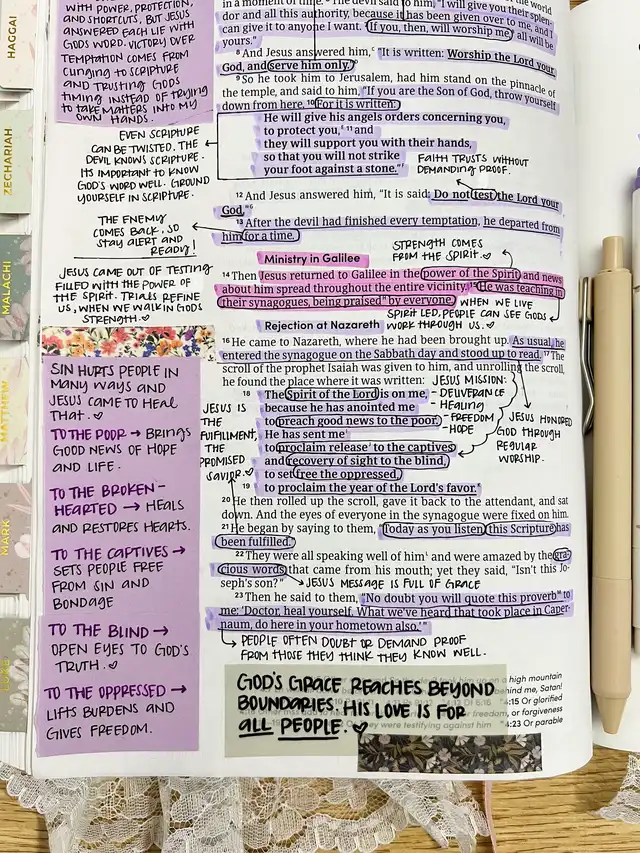 HAGGAI
ZECHARIAH
MALACHI
MATTHEW
MARK
LUKE
WITH POWER, PROTECTION,
AND SHORTCUTS, BUT JESUS
ANSWERED EACH LIE WITH
GODS WORD. VICTORY OVER
TEMPTATION COMES FROM
CLINGING TO SCRIPTURE
AND TRUSTING GODS
TIMING INSTEAD OF TRYING
TO TAKE MATTERS INTO MY
OWN HANDS.
EVEN SCRIPTURE
CAN BE TWISTED. THE
DEVIL KNOWS SCRIPTURE.
ITS IMPORTANT TO KNOW
GOD'S WORD WELL. GROUND
YOURSELF IN SCRIPTURE.
THE ENEMY
COMES BACK, SO
STAY ALERT AND
READY!
JESUS CAME OUT OF TESTING
FILLED WITH THE POWER OF
THE SPIRIT. TRIALS REFINE
US, WHEN WE WALK IN GODS
STRENGTH.
SIN HURTS PEOPLE IN
MANY WAYS AND
JESUS CAME TO HEAL
THAT.
TO THE POOR → BRINGS
GOOD NEWS OF HOPE
AND LIFE.
TO THE BROKEN-
HEARTED → HEALS
AND RESTORES HEARTS.
TO THE CAPTIVES →
SETS PEOPLE FREE
FROM SIN AND
BONDAGE
TO THE BLIND →
OPEN EYES TO GOD'S
TRUTH.
TO THE OPPRESSED →
LIFTS BURDENS AND
GIVES FREEDOM.
in a moment of time. The devil said to him, "I will give you their splen-
dor and all this authority, because it has been given over to me, and I
can give it to anyone I want. If you, then, will worship me, all will be
yours."
8 And Jesus answered him, "It is written: Worship the Lord your
God, and serve him only."
9 So he took him to Jerusalem, had him stand on the pinnacle of
the temple, and said to him, "If you are the Son of God, throw yourself
down from here. 10 For it is written:
He will give his angels orders concerning you,
to protect you, 11 and
they will support you with their hands,
so that you will not strike
your foot against a stone."
FAITH TRUSTS WITHOUT
DEMANDING PROOF.
12 And Jesus answered him, "It is said: Do not test the Lord your
God."
13 After the devil had finished every temptation, he departed from
him for a time.
STRENGTH COMES
FROM THE SPIRIT.
Ministry in Galilee
14 Then Jesus returned to Galilee in the power of the Spirit, and news
about him spread throughout the entire vicinity. 15 He was teaching
in their synagogues, being praised by everyone.
WHEN WE LIVE
SPIRIT LED, PEOPLE CAN SEE GODS
WORK THROUGH US.
Rejection at Nazareth
16 He came to Nazareth, where he had been brought up. As usual, he
entered the synagogue on the Sabbath day and stood up to read. 17 The
scroll of the prophet Isaiah was given to him, and unrolling the scroll,
he found the place where it was written:
JESUS MISSION:
- DELIVERANCE
- HEALING
- FREEDOM
- HOPE
JESUS HONORED
GOD THROUGH
REGULAR
WORSHIP.
JESUS IS
THE
FULFILLMENT,
THE
PROMISED
SAVIOR.
18 The Spirit of the Lord is on me,
because he has anointed me
to preach good news to the poor.
He has sent me
to proclaim release to the captives
and recovery of sight to the blind,
to set free the oppressed,
19 to proclaim the year of the Lord's favor.
20 He then rolled up the scroll, gave it back to the attendant, and sat
down. And the eyes of everyone in the synagogue were fixed on him.
21 He began by saying to them, "Today as you listen, this Scripture has
been fulfilled."
22 They were all speaking well of him and were amazed by the gra-
cious words that came from his mouth; yet they said, "Isn't this Jo-
seph's son?"
JESUS MESSAGE IS FULL OF GRACE
23 Then he said to them, "No doubt you will quote this proverb to
me: 'Doctor, heal yourself. What we've heard that took place in Caper-
naum, do here in your hometown also.'"
PEOPLE OFTEN DOUBT OR DEMAND PROOF
FROM THOSE THEY THINK THEY KNOW WELL.
GOD'S GRACE REACHES BEYOND
BOUNDARIES. HIS LOVE IS FOR
ALL PEOPLE.
a high mountain
behind me, Satan!
4:15 Or glorified
freedom, or forgiveness
they were testifying against him
4:23 Or parable